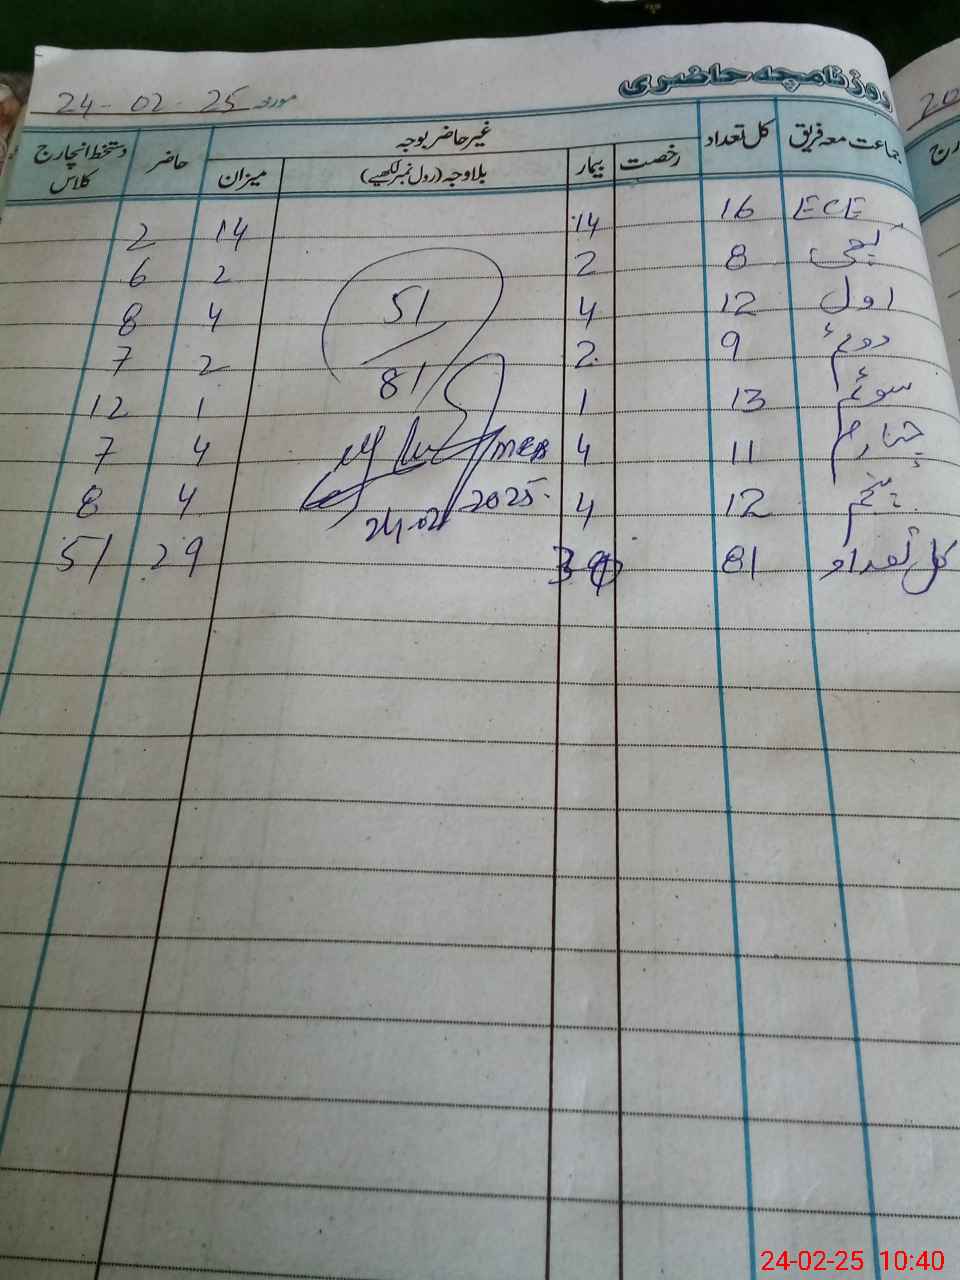 روزنامچہ حاضری
مورخہ 24-02-25
جماعت معہ فریق کل تعداد غیر حاضر بوجہ حاضر دستخط انچارج کلاس
رخصت بیمار بلاوجہ (رول نمبر لکھیے) میزان
ECE 16 14 14 2
کچی 8 2 2 6
اول 12 4 4 8
دوم 9 2 2 7
سوئم 13 1 1 12
چہارم 11 4 4 7
پنجم 12 4 4 8
کل تعداد 81 29 51
51
81
24-02-2025
20
24-02-25 10:40